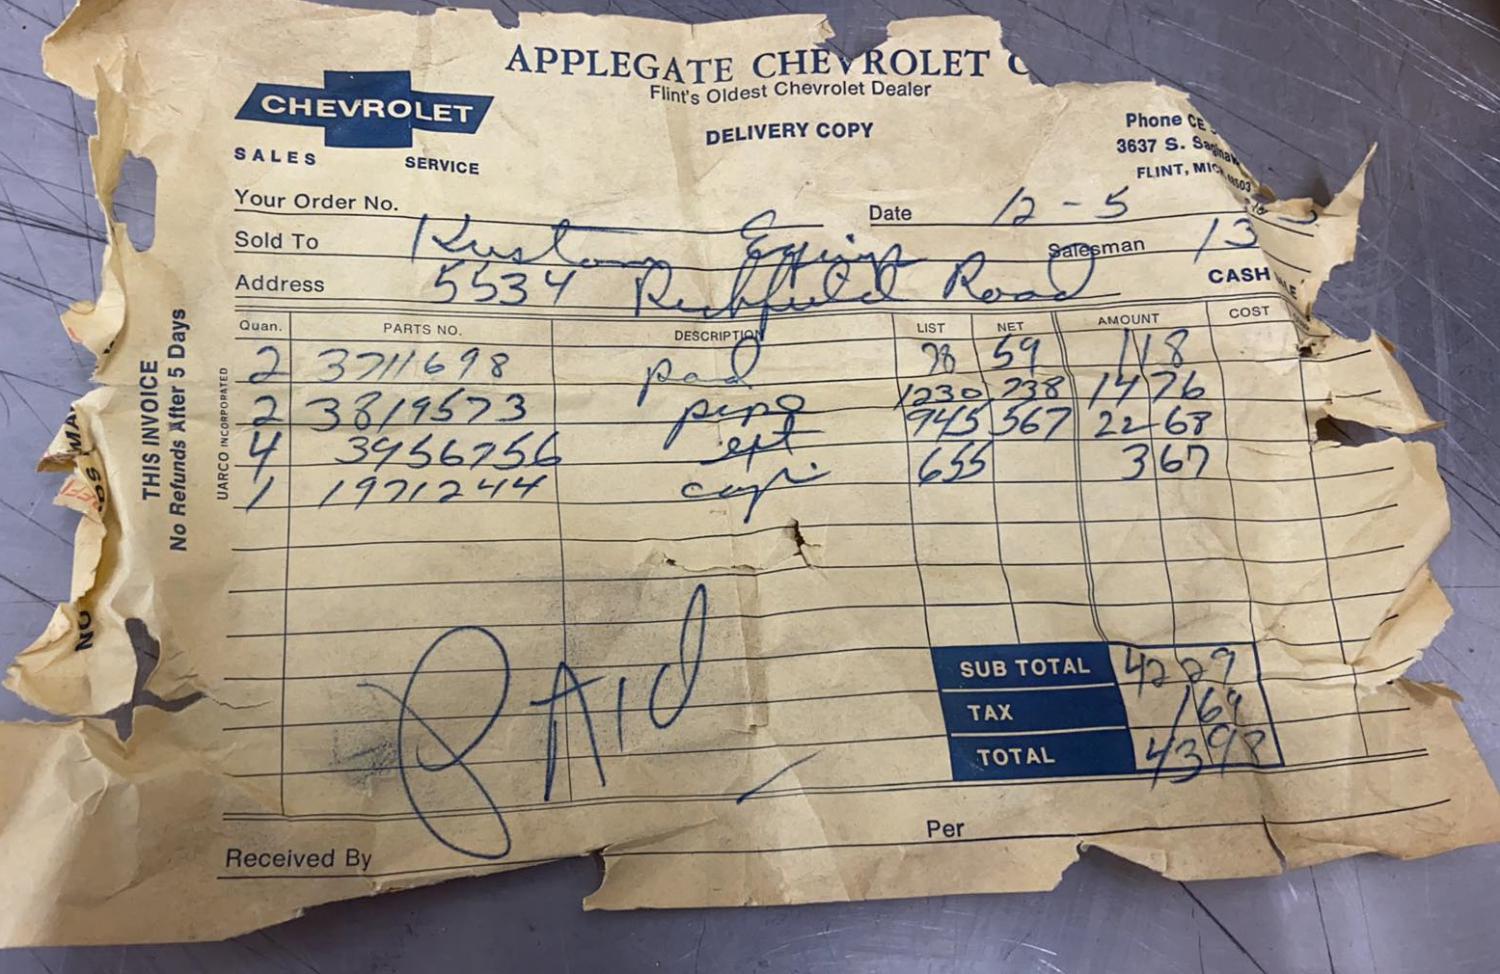 APPLEGATE CHEVROLET C
Flint's Oldest Chevrolet Dealer
CHEVROLET
SALES SERVICE
DELIVERY COPY
Phone CE
3637 S. Saginaw
FLINT, MICH. 48503
Your Order No.
Date 12-5
Sold To Kustom
Salesman 13
Address 5534 Richfield Road
CASH
THIS INVOICE
No Refunds After 5 Days
UARCO INCORPORATED
Quan. PARTS NO. DESCRIPTION LIST NET AMOUNT COST
2 3711698 pad 78 59 1 18
2 3819573 pipe 1230 738 14 76
4 3956756 945 567 22 68
1 1971244 655 3 67
SUB TOTAL 42 29
TAX 1 69
TOTAL 43 98
PAId
Per
Received By
NO